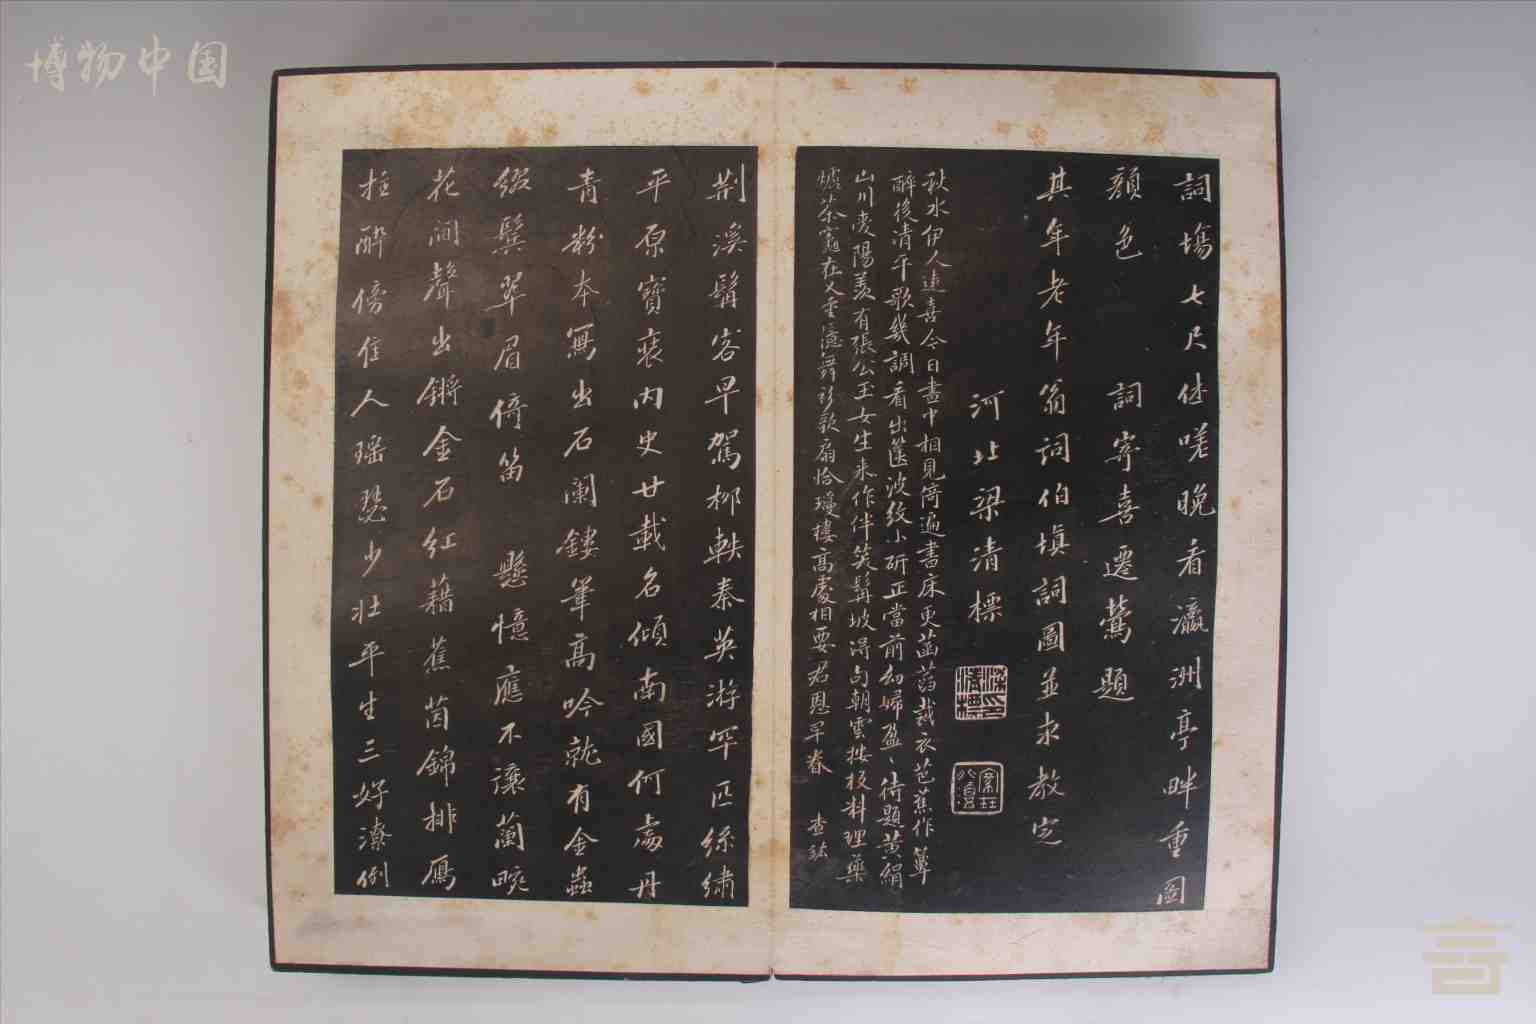 博物中国
詞場七尺徒嗟晚看瀛洲亭畔重圖
顏色　詞寄喜遷鶯題
其年老年翁詞伯填詞圖並求教定
河北梁清標
秋水伊人遠喜今日畫中相見倚遍書床更菡萏裁衣芭蕉作簟
醉後清平歌幾調看出篋波紋小研正當前幼婦盈、待題黃絹
山川慶陽羨有張公玉女生來作伴笑髯坡得句朝雲按板料理藥
爐茶竈在人重憶舞衫歌扇恰瓊樓高處相要君恩早眷　查
荆溪髯客早駕柳軼秦英游罕匹絲繡
平原寶裝內史廿載名傾南國何處丹
青粉本寫出石闌鏤筆高吟就有金蟲
綴鬓翠眉倚笛　懸憶應不讓蘭畹
花間聲出鏘金石紅藉蕉茵錦排雁
柱醉傍佳人瑤瑟少壯平生三好潦倒